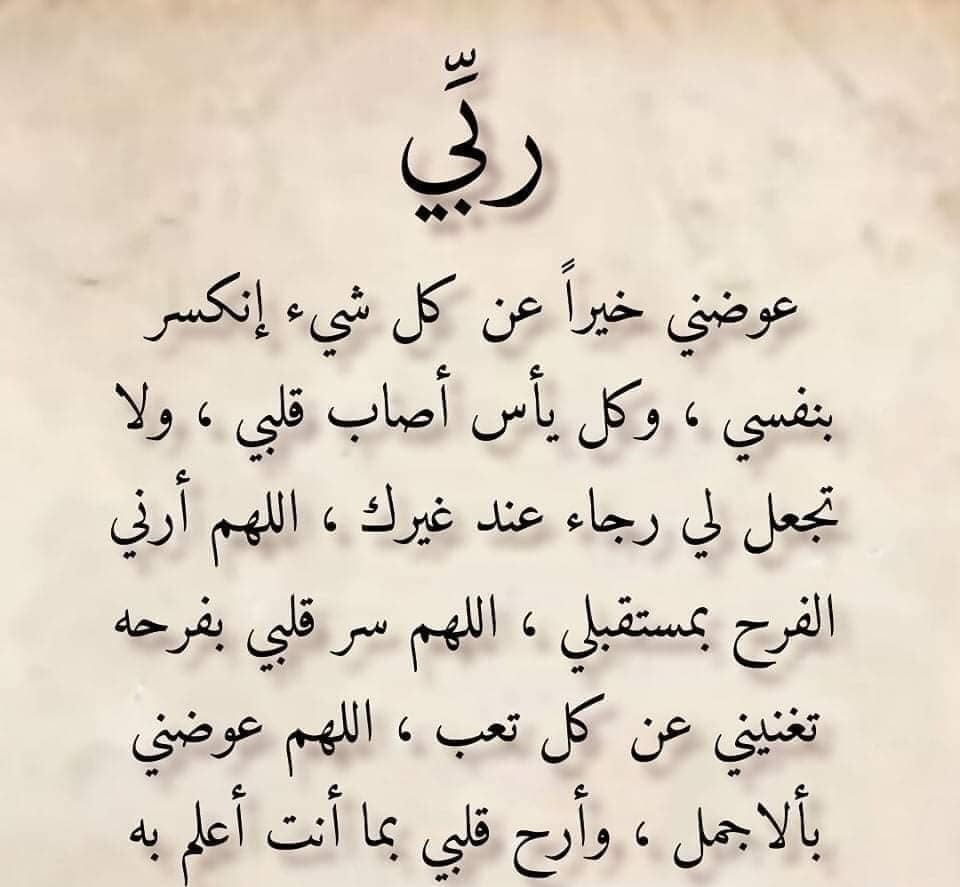 ربِّي
عوضني خيراً عن كل شيء إنكسر
بنفسي ، وكل يأس أصاب قلبي ، ولا
تجعل لي رجاء عند غيرك ، اللهم أرني
الفرح بمستقبلي ، اللهم سر قلبي بفرحه
تغنيني عن كل تعب ، اللهم عوضني
بألاجمل ، وأرح قلبي بما أنت أعلم به